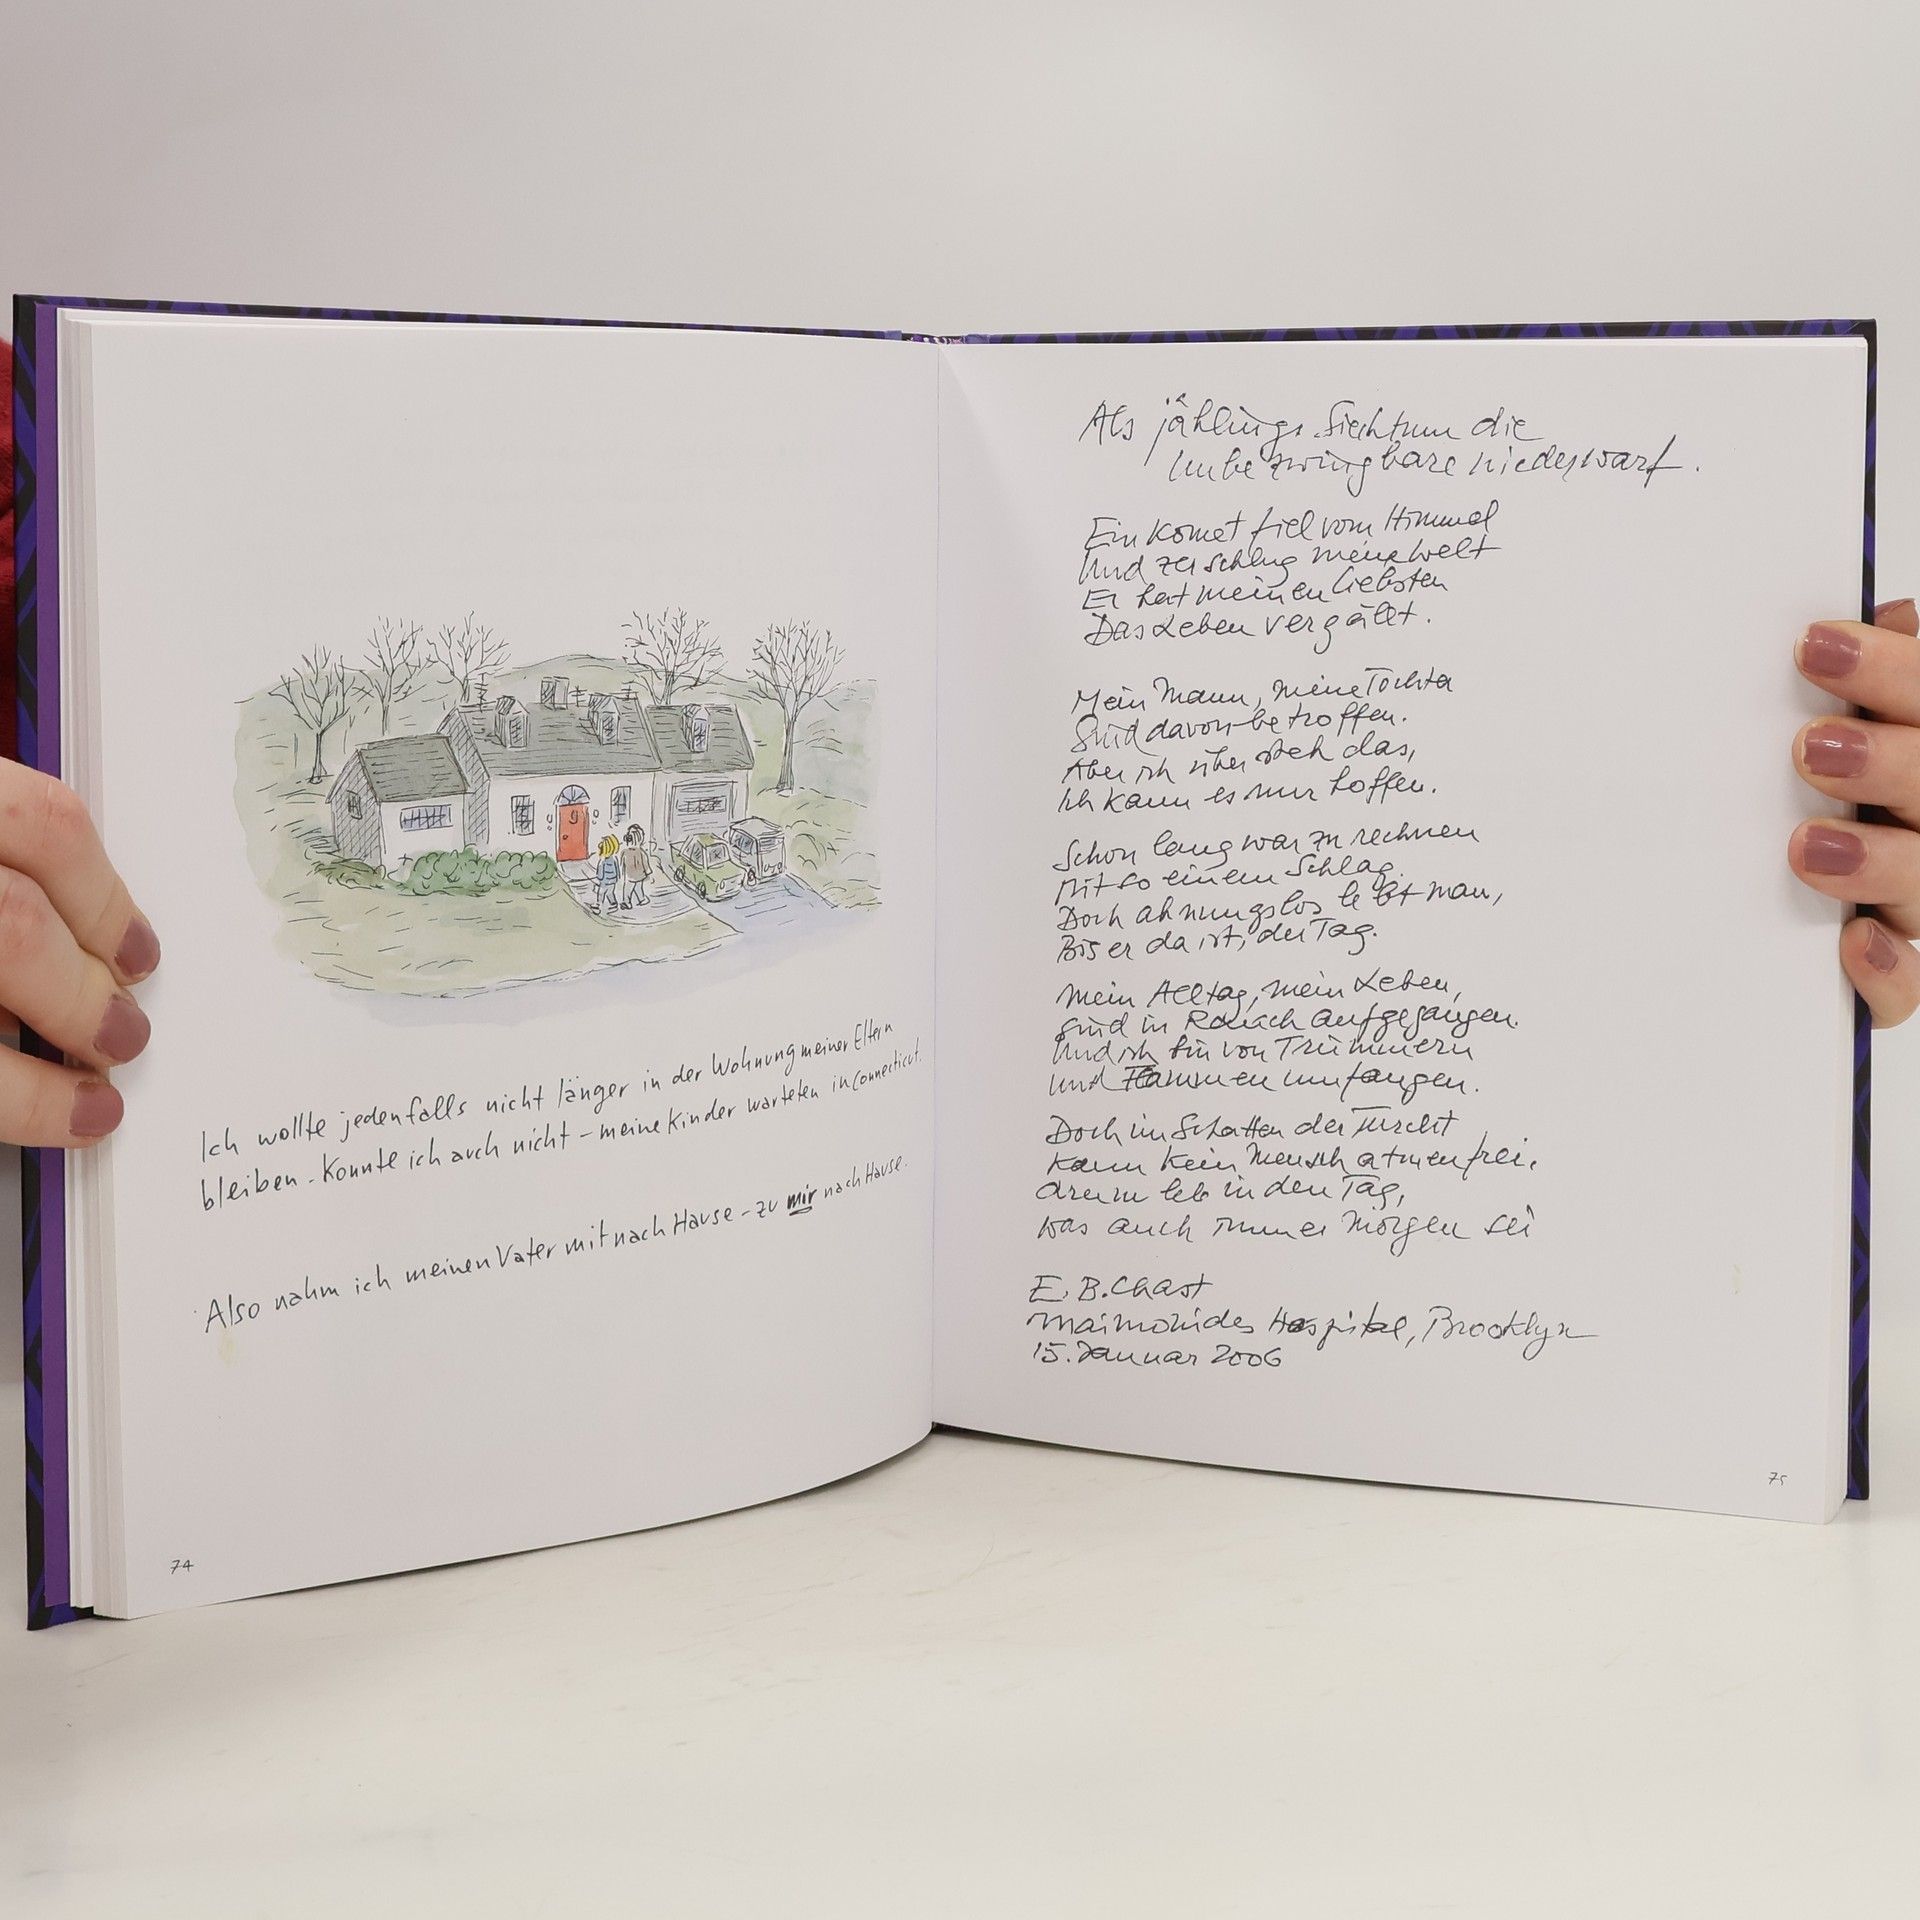 Ich wollte jedenfalls nicht länger in der Wohnung meiner Eltern
bleiben. Konnte ich auch nicht – meine Kinder warteten in Connecticut.
Also nahm ich meinen Vater mit nach Hause – zu mir nach Hause.
74
Als jählings Siechtum die
Unbezwingbare niederwarf.
Ein Komet fiel vom Himmel
Und zerschlug meine Welt
Er hat meinen Liebsten
Das Leben vergällt.
Mein Mann, meine Tochter
Sind davon betroffen.
Aber ich übersteh das,
Ich kann es nur hoffen.
Schon lang war zu rechnen
Mit so einem Schlag.
Doch ahnungslos lebt man,
Bis er da ist, der Tag.
Mein Alltag, mein Leben,
Sind in Rauch aufgegangen.
Und ich bin von Trümmern
Und Flammen umfangen.
Doch im Schatten der Furcht
Kann kein Mensch atmen frei,
Drum leb in den Tag,
Was auch immer morgen sei
E. B. Chast
Maimonides Hospital, Brooklyn
15. Januar 2006
75